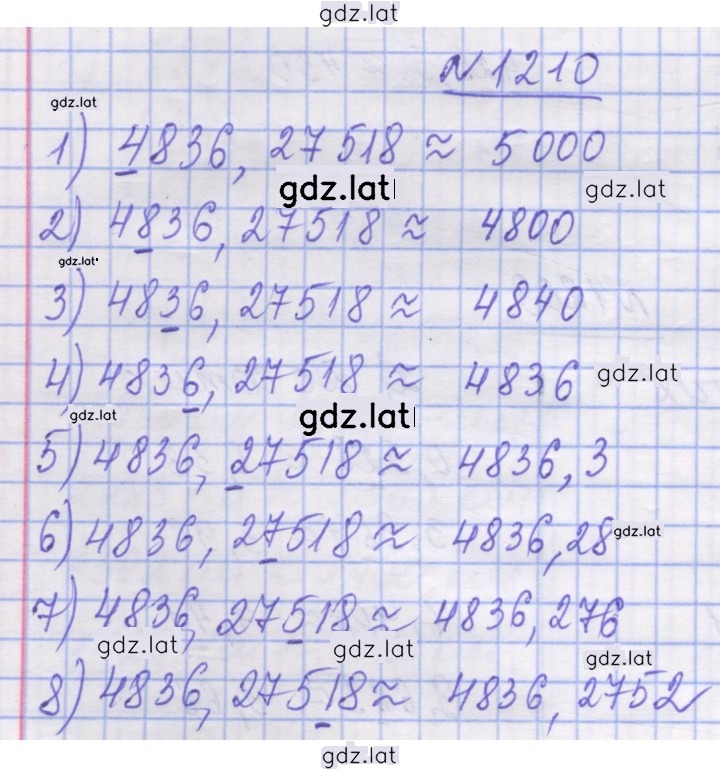 gdz.lat
№ 1210
gdz.lat
1) 4836,27518 ≈ 5000
gdz.lat gdz.lat
2) 4836,27518 ≈ 4800
gdz.lat
3) 4836,27518 ≈ 4840
4) 4836,27518 ≈ 4836 gdz.lat
gdz.lat gdz.lat
5) 4836,27518 ≈ 4836,3
6) 4836,27518 ≈ 4836,28 gdz.lat
7) 4836,27518 ≈ 4836,276
gdz.lat gdz.lat gdz.lat
8) 4836,27518 ≈ 4836,2752
gdz.lat